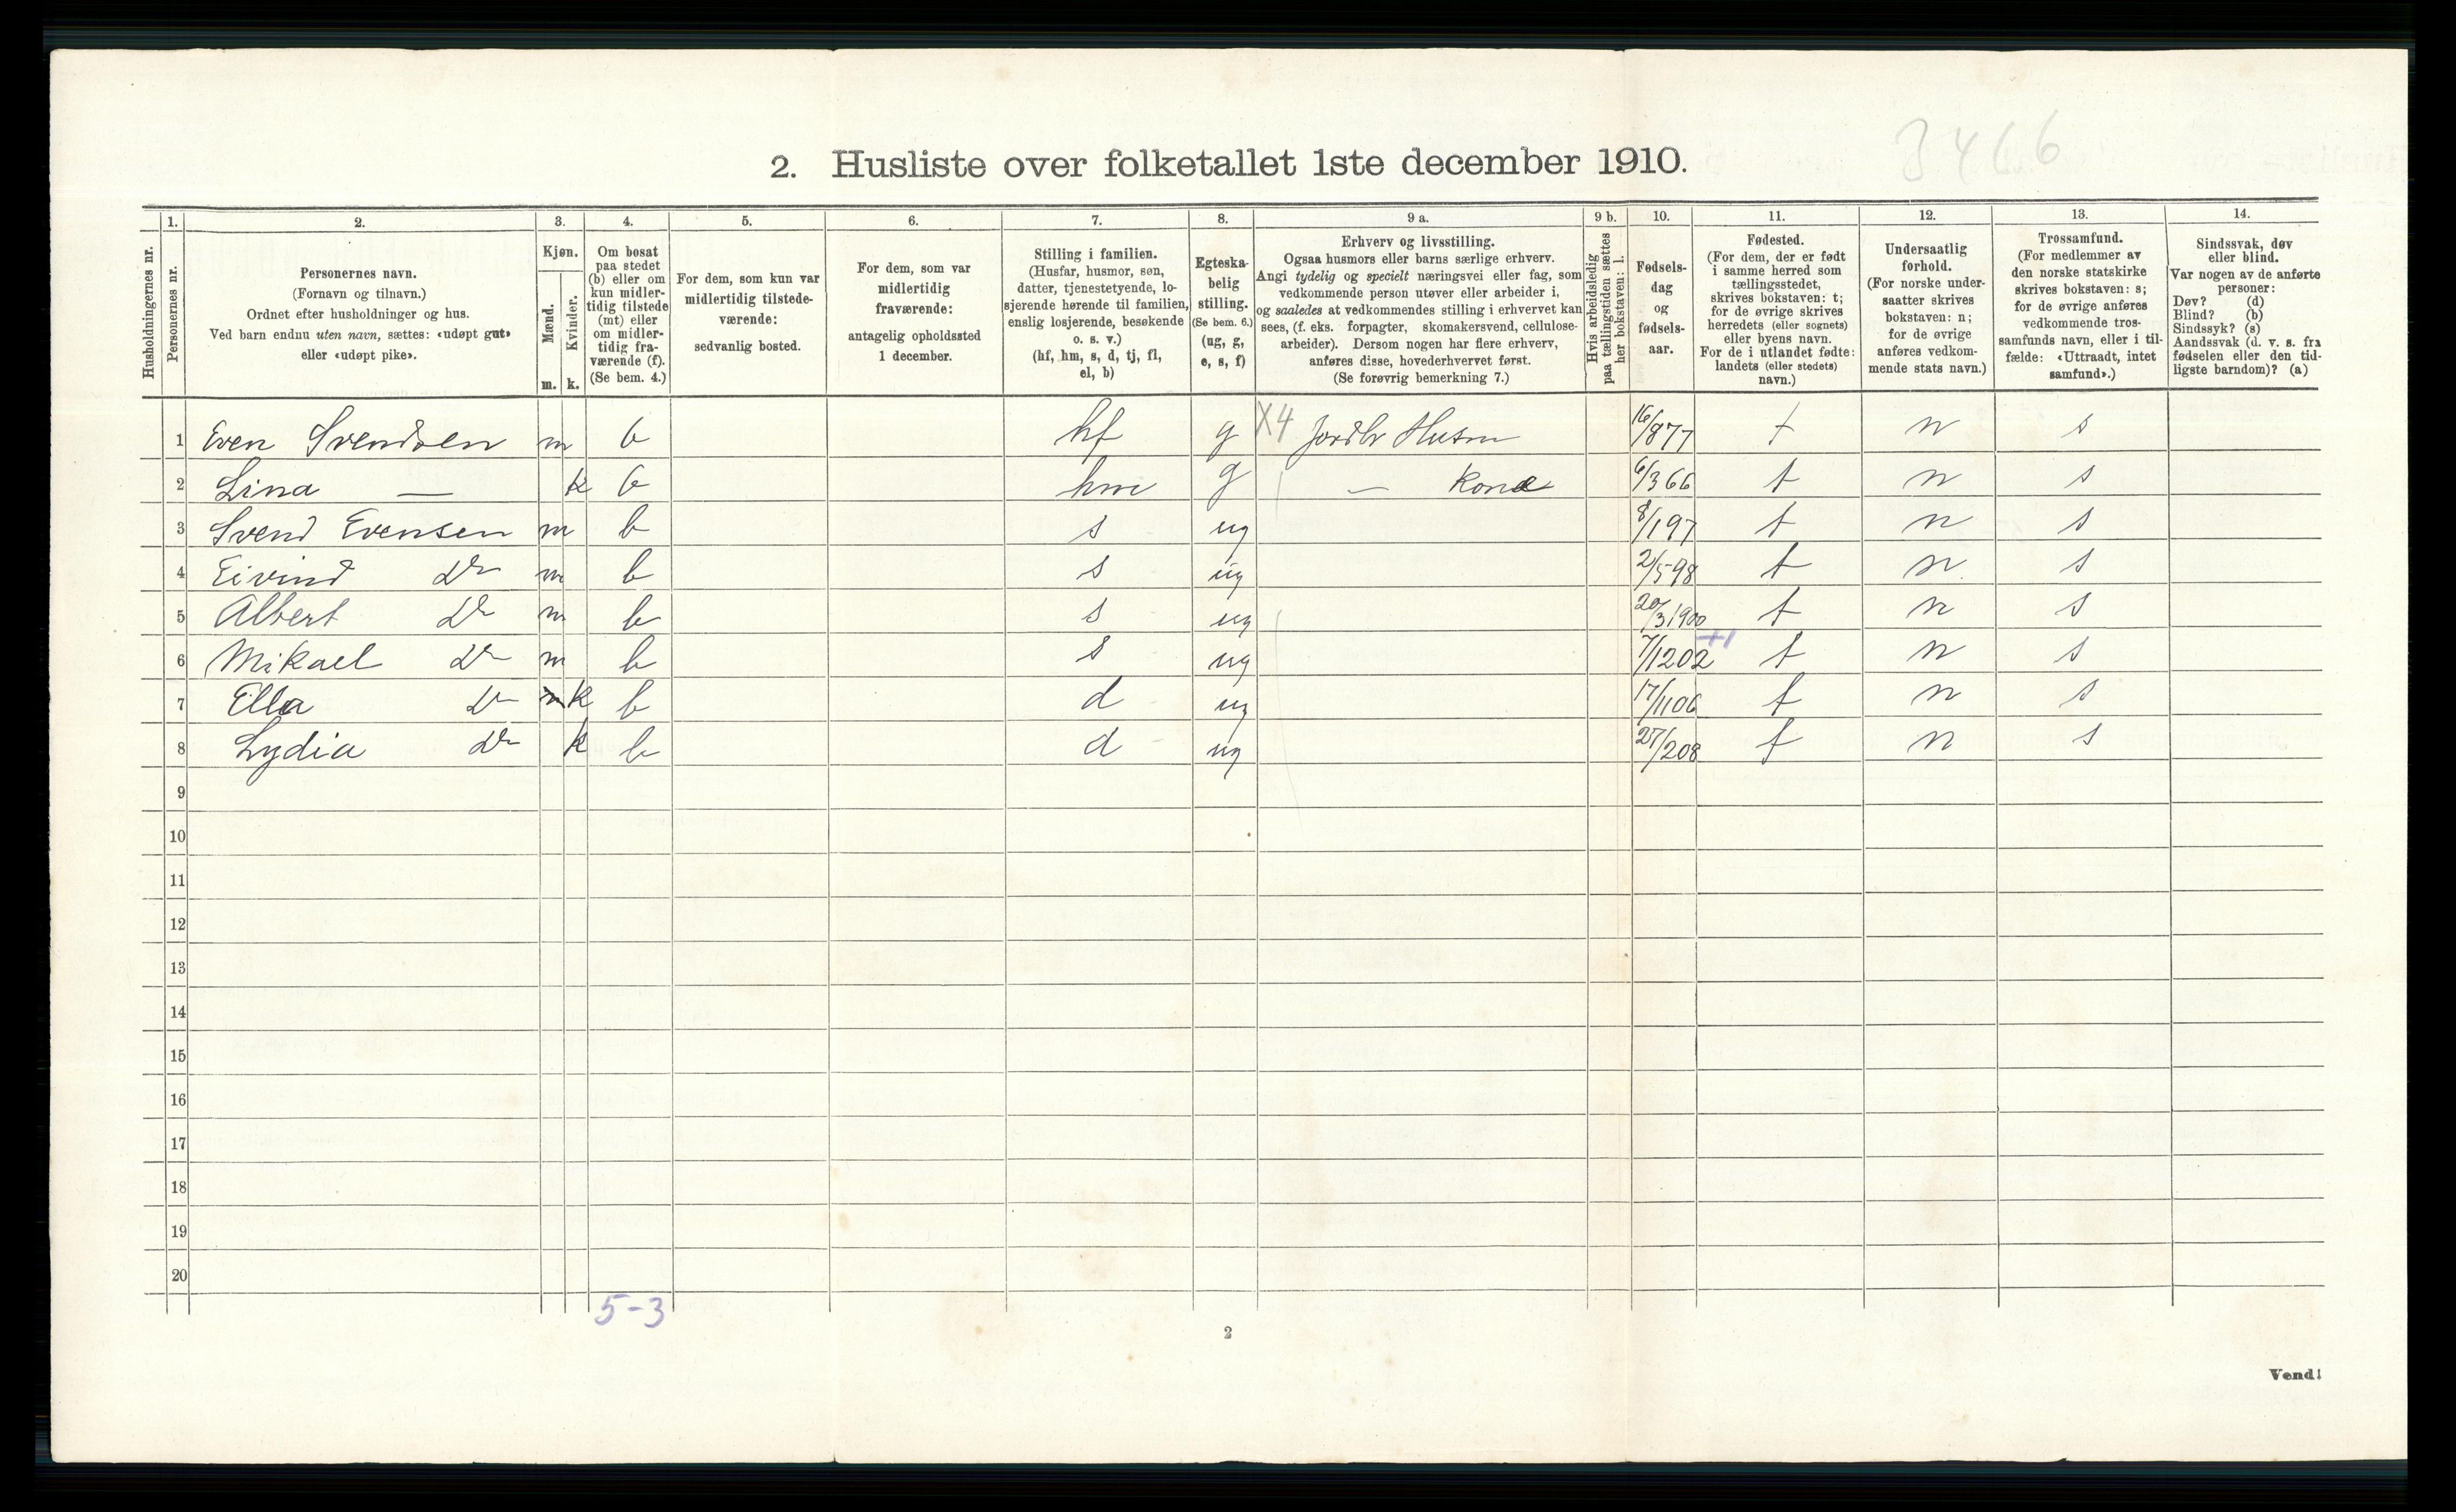 3466
2. Husliste over folketallet 1ste december 1910.
Husholdningernes nr.
1. Personernes nr.
2. Personernes navn.
(Fornavn og tilnavn.)
Ordnet efter husholdninger og hus.
Ved barn endnu uten navn, sættes: «udøpt gut»
eller «udøpt pike».
3. Kjøn.
Mænd. m.
Kvinder. k.
4. Om bosat
paa stedet
(b) eller om
kun midler-
tidig tilstede
(mt) eller
om midler-
tidig fra-
værende (f).
(Se bem. 4.)
5. For dem, som kun var
midlertidig tilstede-
værende:
sedvanlig bosted.
6. For dem, som var
midlertidig
fraværende:
antagelig opholdssted
1 december.
7. Stilling i familien.
(Husfar, husmor, søn,
datter, tjenestetyende, lo-
sjerende hørende til familien,
enslig losjerende, besøkende
o. s. v.)
(hf, hm, s, d, tj, fl,
el, b)
8. Egteska-
belig
stilling.
(Se bem. 6.)
(ug, g,
e, s, f)
9 a. Erhverv og livsstilling.
Ogsaa husmors eller barns særlige erhverv.
Angi tydelig og specielt næringsvei eller fag, som
vedkommende person utøver eller arbeider i,
og saaledes at vedkommendes stilling i erhvervet kan
sees, (f. eks. forpagter, skomakersvend, cellulose-
arbeider). Dersom nogen har flere erhverv,
anføres disse, hovederhvervet først.
(Se forøvrig bemerkning 7.)
9 b. Hvis arbeidsledig
paa tællingstiden sættes
her bokstaven: l.
10. Fødsels-
dag
og
fødsels-
aar.
11. Fødested.
(For dem, der er født
i samme herred som
tællingsstedet,
skrives bokstaven: t;
for de øvrige skrives
herredets (eller sognets)
eller byens navn.
For de i utlandet fødte:
landets (eller stedets)
navn.)
12. Undersaatlig
forhold.
(For norske under-
saatter skrives
bokstaven: n;
for de øvrige
anføres vedkom-
mende stats navn.)
13. Trossamfund.
(For medlemmer av
den norske statskirke
skrives bokstaven: s;
for de øvrige anføres
vedkommende tros-
samfunds navn, eller i til-
fælde: «Uttraadt, intet
samfund».)
14. Sindssvak, døv
eller blind.
Var nogen av de anførte
personer:
Døv? (d)
Blind? (b)
Sindssyk? (s)
Aandssvak (d. v. s. fra
fødselen eller den tid-
ligste barndom)? (a)
1 Even Svendsen m b hf g X4 Jordbr Husm 16/877 t n s
2 Lina — k b hm g — Kone 6/366 t n s
3 Svend Evensen m b s ug 8/197 t n s
4 Eivind Do m b s ug 2/598 t n s
5 Albert Do m b s ug 20/31900 t n s
6 Mikael Do m b s ug 7/1202 +1 t n s
7 Ella Do m k b d ug 17/1106 t n s
8 Lydia Do k b d ug 27/208 t n s
9
10
11
12
13
14
15
16
17
18
19
20
5-3
2
Vend!